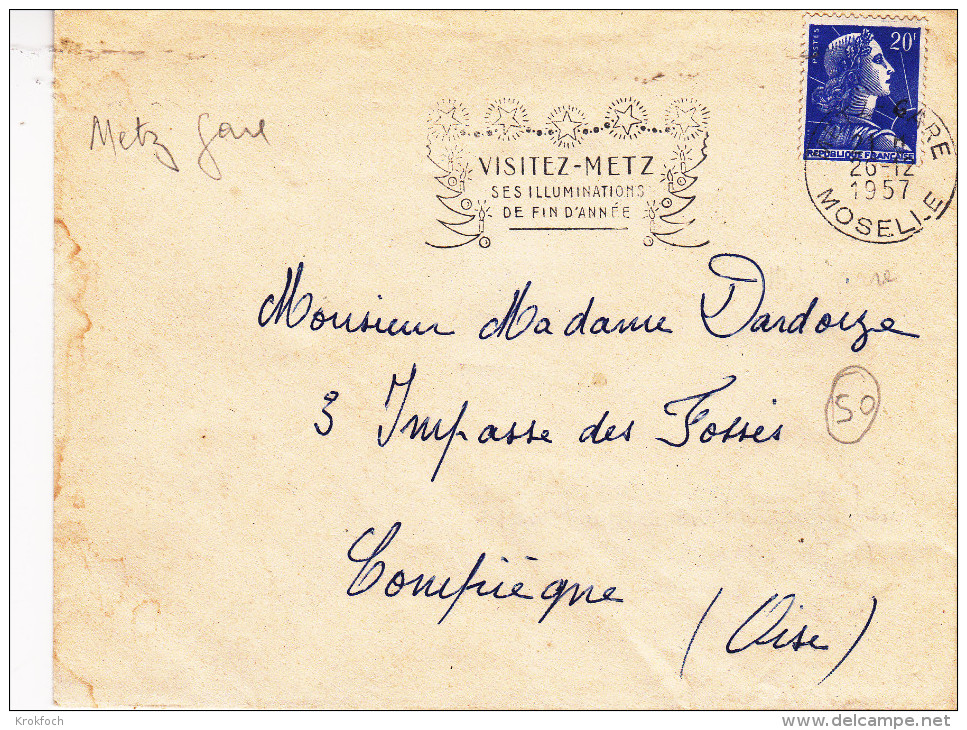 20F
POSTES
REPUBLIQUE FRANÇAISE
GARE
26-12
1957
MOSELLE
Metz gare
VISITEZ-METZ
SES ILLUMINATIONS
DE FIN D'ANNÉE
Monsieur Madame Dardoize
3 Impasse des Fossés
50
Compiègne
(Oise)
Krokfoch
www.delcampe.net